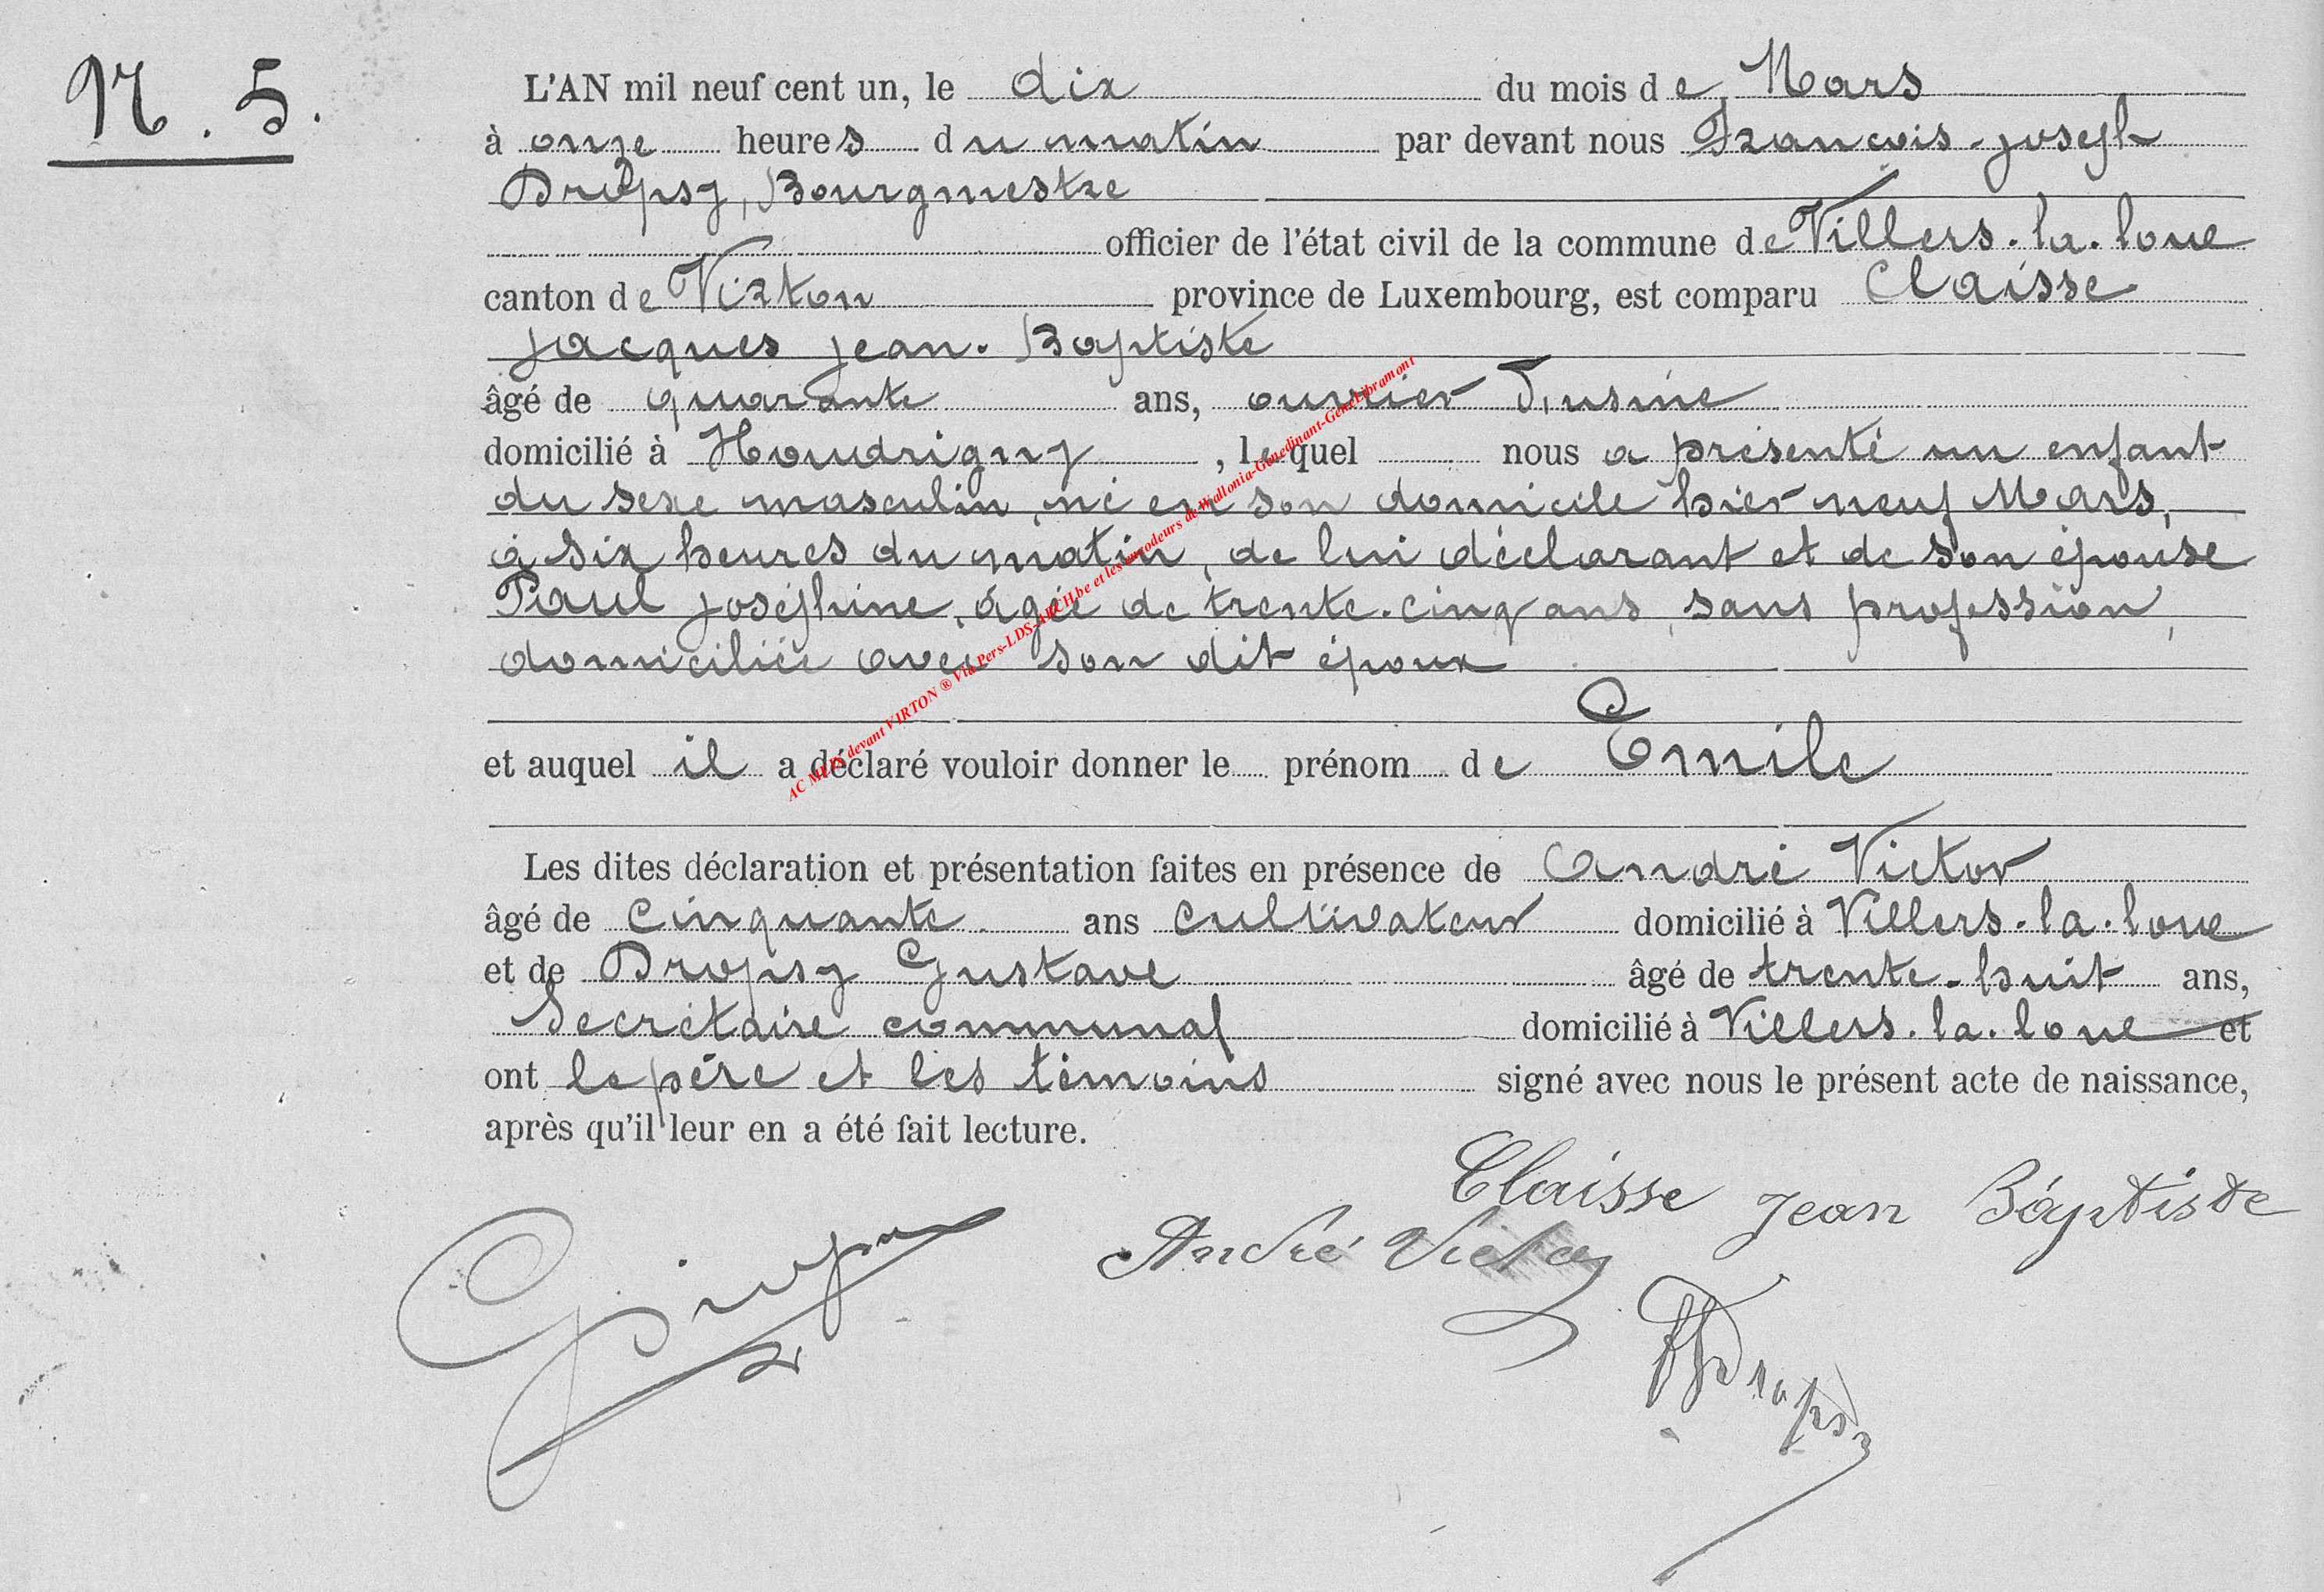 N. 5.
L'AN mil neuf cent un, le dix du mois de Mars
à onze heures du matin par devant nous François-joseph
Dropsy, Bourgmestre
officier de l'état civil de la commune de Villers-la-loue
canton de Virton province de Luxembourg, est comparu Claisse
jacques jean-Baptiste
âgé de quarante ans, ouvrier d'usine
domicilié à Houdrigny, lequel nous a présenté un enfant
du sexe masculin, né en son domicile hier neuf Mars,
à six heures du matin, de lui déclarant et de son épouse
Paul joséphine, âgée de trente-cinq ans, sans profession,
domiciliée avec son dit époux
et auquel il a déclaré vouloir donner le prénom de Emile
Les dites déclaration et présentation faites en présence de André Victor
âgé de cinquante ans cultivateur domicilié à Villers-la-loue
et de Dropsy Gustave âgé de trente-huit ans,
Secrétaire communal domicilié à Villers-la-loue et
ont le père et les témoins signé avec nous le présent acte de naissance,
après qu'il leur en a été fait lecture.
Claisse jean Baptiste
André Victor
Dropsy
AC MEIX devant VIRTON ® Via Pers-LDS-ARCH.be et les encodeurs de Wallonia-Genedinant-GeneLibramont